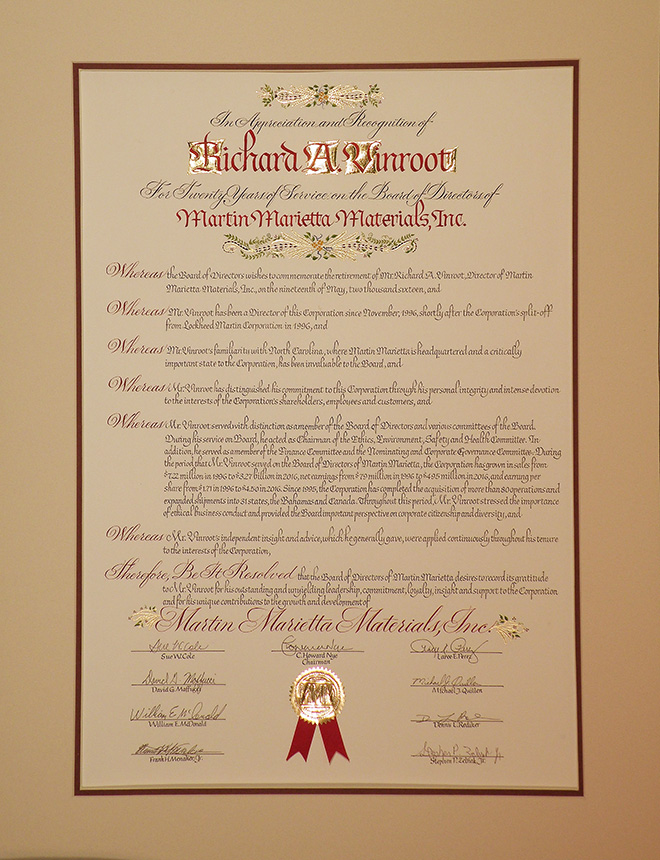 In Appreciation and Recognition of
Richard A. Vinroot
For Twenty Years of Service on the Board of Directors of
Martin Marietta Materials, Inc.
Whereas the Board of Directors wishes to commemorate the retirement of Mr. Richard A. Vinroot, Director of Martin
Marietta Materials, Inc., on the nineteenth of May, two thousand sixteen, and
Whereas Mr. Vinroot has been a Director of this Corporation since November, 1996, shortly after the Corporation's split-off
from Lockheed Martin Corporation in 1996, and
Whereas Mr. Vinroot's familiarity with North Carolina, where Martin Marietta is headquartered and a critically
important state to the Corporation, has been invaluable to the Board, and
Whereas Mr. Vinroot has distinguished his commitment to this Corporation through his personal integrity and intense devotion
to the interests of the Corporation's shareholders, employees and customers, and
Whereas Mr. Vinroot served with distinction as a member of the Board of Directors and various committees of the Board.
During his service on Board, he acted as Chairman of the Ethics, Environment, Safety and Health Committee. In
addition, he served as a member of the Finance Committee and the Nominating and Corporate Governance Committee. During
the period that Mr. Vinroot served on the Board of Directors of Martin Marietta, the Corporation has grown in sales from
$722 million in 1996 to $3.27 billion in 2016, net earnings from $79 million in 1996 to $495 million in 2016, and earning per
share from $1.71 in 1996 to $4.50 in 2016. Since 1995, the Corporation has completed the acquisition of more than 80 operations and
expanded shipments into 31 states, the Bahamas and Canada. Throughout this period, Mr. Vinroot stressed the importance
of ethical business conduct and provided the Board important perspective on corporate citizenship and diversity, and
Whereas Mr. Vinroot's independent insight and advice, which he generally gave, were applied continuously throughout his tenure
to the interests of the Corporation,
Therefore, Be It Resolved that the Board of Directors of Martin Marietta desires to record its gratitude
to Mr. Vinroot for his outstanding and unyielding leadership, commitment, loyalty, insight and support to the Corporation
and for his unique contributions to the growth and development of
Martin Marietta Materials, Inc.
Sue W. Cole
C. Howard Nye
Chairman
Laree E. Perez
David G. Maffucci
Michael J. Quillen
William E. McDonald
Dennis L. Rediker
Frank H. Menaker, Jr.
Stephen P. Zelnak, Jr.